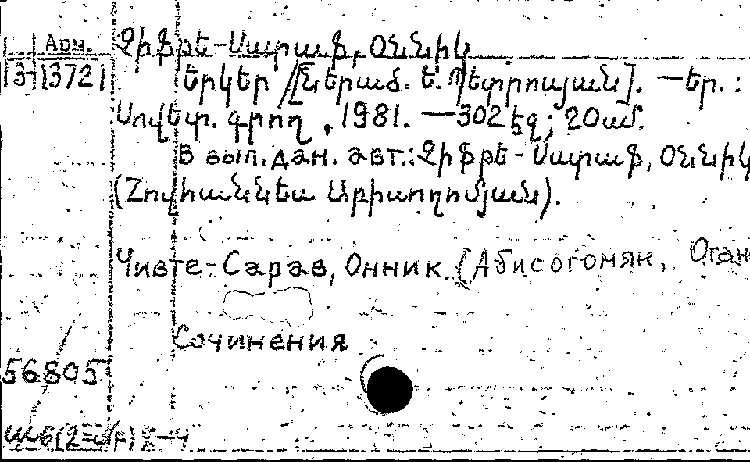 Арм. Չիֆթե-Սարաֆ, Օննիկ
3-13721 Երկեր /[Ներած. Ե. Պետրոսյան]. — Եր. :
Սովետ. գրող, 1981. — 302 էջ; 20 սմ.
В вып. дан. авт.: Չիֆթե-Սարաֆ, Օննիկ
(Հովհաննես Աբիսողոմյան).
Чивте-Сарав, Онник (Абисогомян, Оган
Сочинения
56805